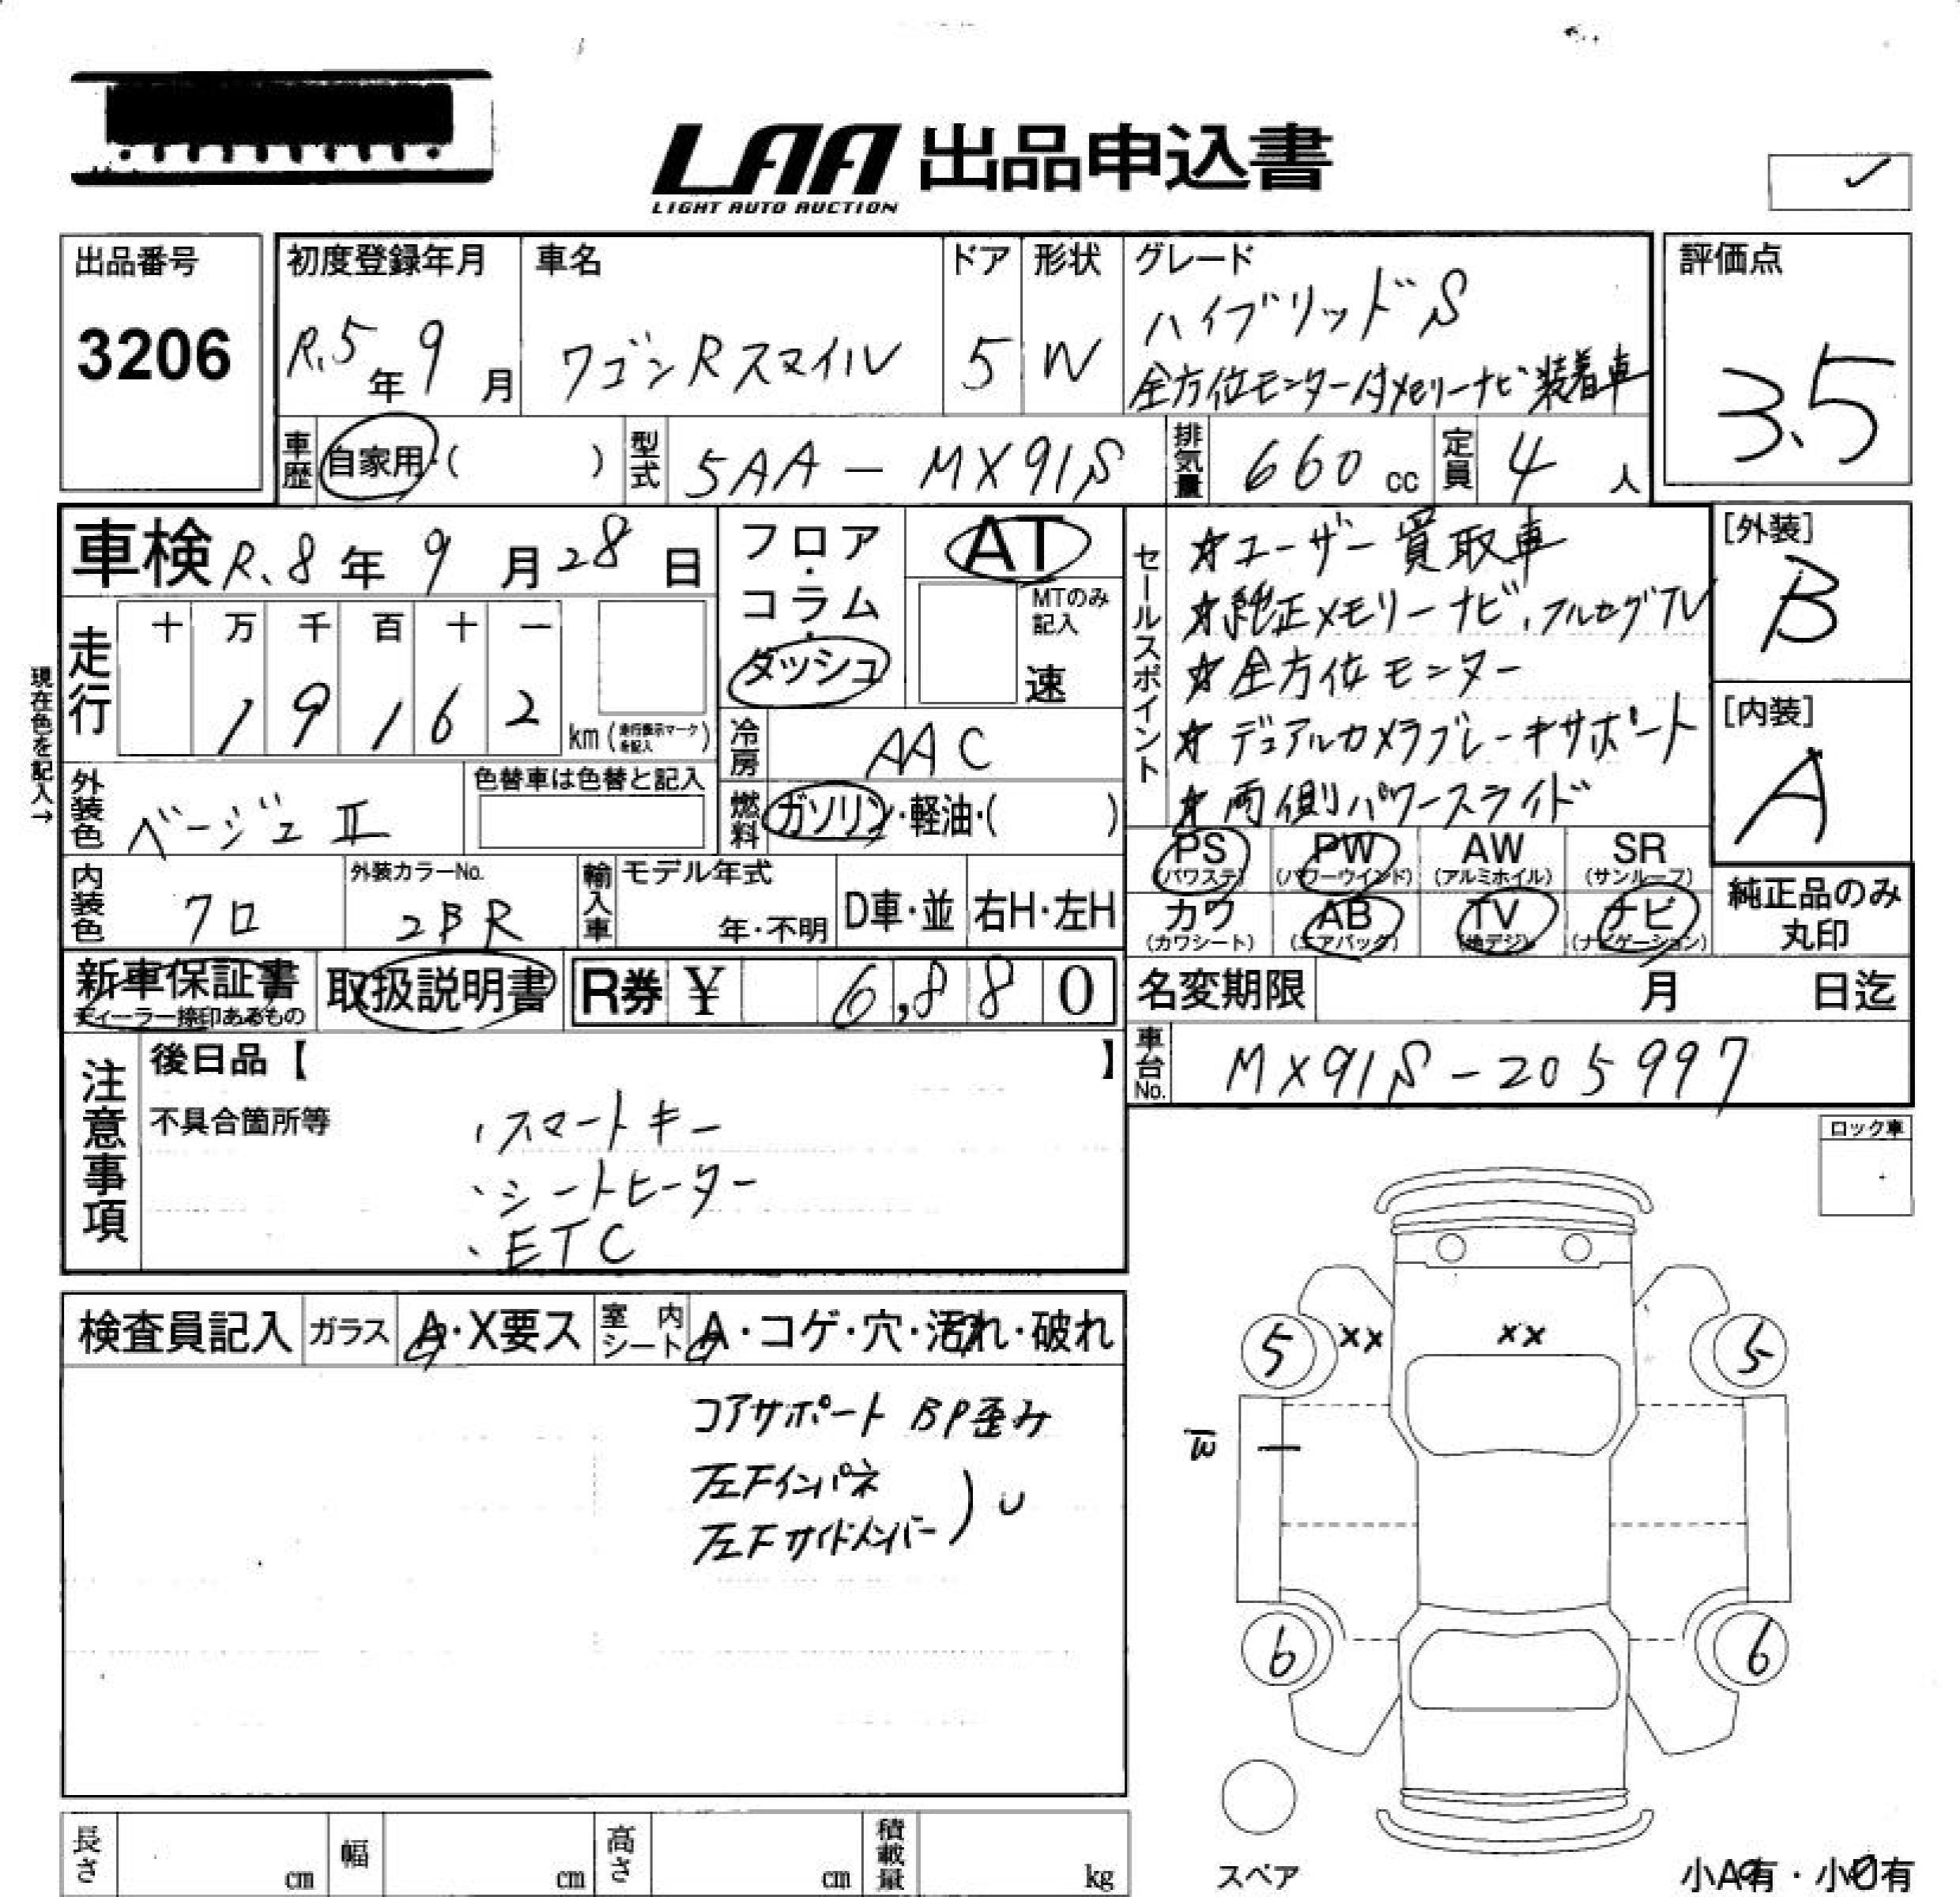 LAA 出品申込書
LIGHT AUTO AUCTION
✓
出品番号
3206
初度登録年月
R.5年9月
車名
ワゴンRスマイル
ドア
5
形状
W
グレード
ハイブリッドS
全方位モニター付メモリーナビ装着車
評価点
3.5
車歴
自家用・( )
型式
5AA-MX91S
排気量
660cc
定員
4人
車検 R.8年9月28日
フロア・コラム・ダッシュ
AT
MTのみ記入
速
現在色を記入→
走行
十 万 千 百 十 一
1 9 1 6 2
km(走行表示マークを記入)
冷房
AAC
外装色
ベージュII
色替車は色替と記入
燃料
ガソリン・軽油・( )
セールスポイント
☆ユーザー買取車
☆純正メモリーナビ、フルセグTV
☆全方位モニター
☆デュアルカメラブレーキサポート
☆両側パワースライド
[外装]
B
[内装]
A
PS
(パワステ)
PW
(パワーウインド)
AW
(アルミホイル)
SR
(サンルーフ)
カワ
(カワシート)
AB
(エアバッグ)
TV
(地デジ)
ナビ
(ナビゲーション)
純正品のみ
丸印
内装色
クロ
外装カラーNo.
2BR
輸入車
モデル年式
年・不明
D車・並
右H・左H
新車保証書
ディーラー捺印あるもの
取扱説明書
R券 ¥ 6,880
名変期限 月 日迄
車台No.
MX91S-205997
注意事項
後日品【 】
不具合箇所等
・スマートキー
・シートヒーター
・ETC
ロック車
検査員記入
ガラス
A・X要ス
室内シート
A・コゲ・穴・汚れ・破れ
コアサポート BP歪み
左Fインパネ
左Fサイドメンバー ) U
5
XX
XX
5
W
6
6
スペア
小A有・小凹有
長さ cm
幅 cm
高さ cm
積載量 kg